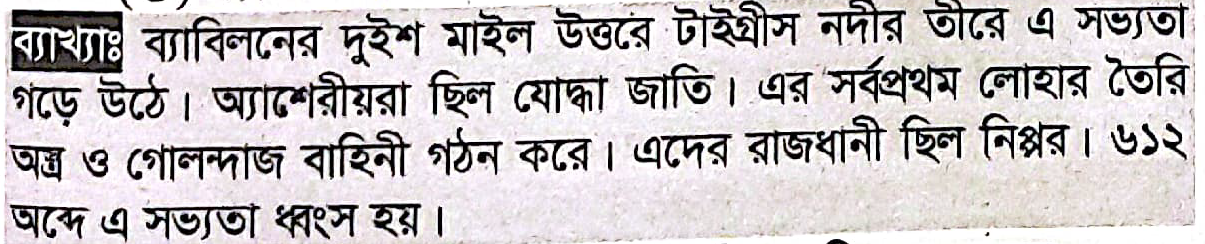 ব্যাখ্যাঃ ব্যাবিলনের দুইশ মাইল উত্তরে টাইগ্রীস নদীর তীরে এ সভ্যতা
গড়ে উঠে। অ্যাশেরীয়রা ছিল যোদ্ধা জাতি। এর সর্বপ্রথম লোহার তৈরি
অস্ত্র ও গোলন্দাজ বাহিনী গঠন করে। এদের রাজধানী ছিল নিপ্পর। ৬১২
অব্দে এ সভ্যতা ধ্বংস হয়।